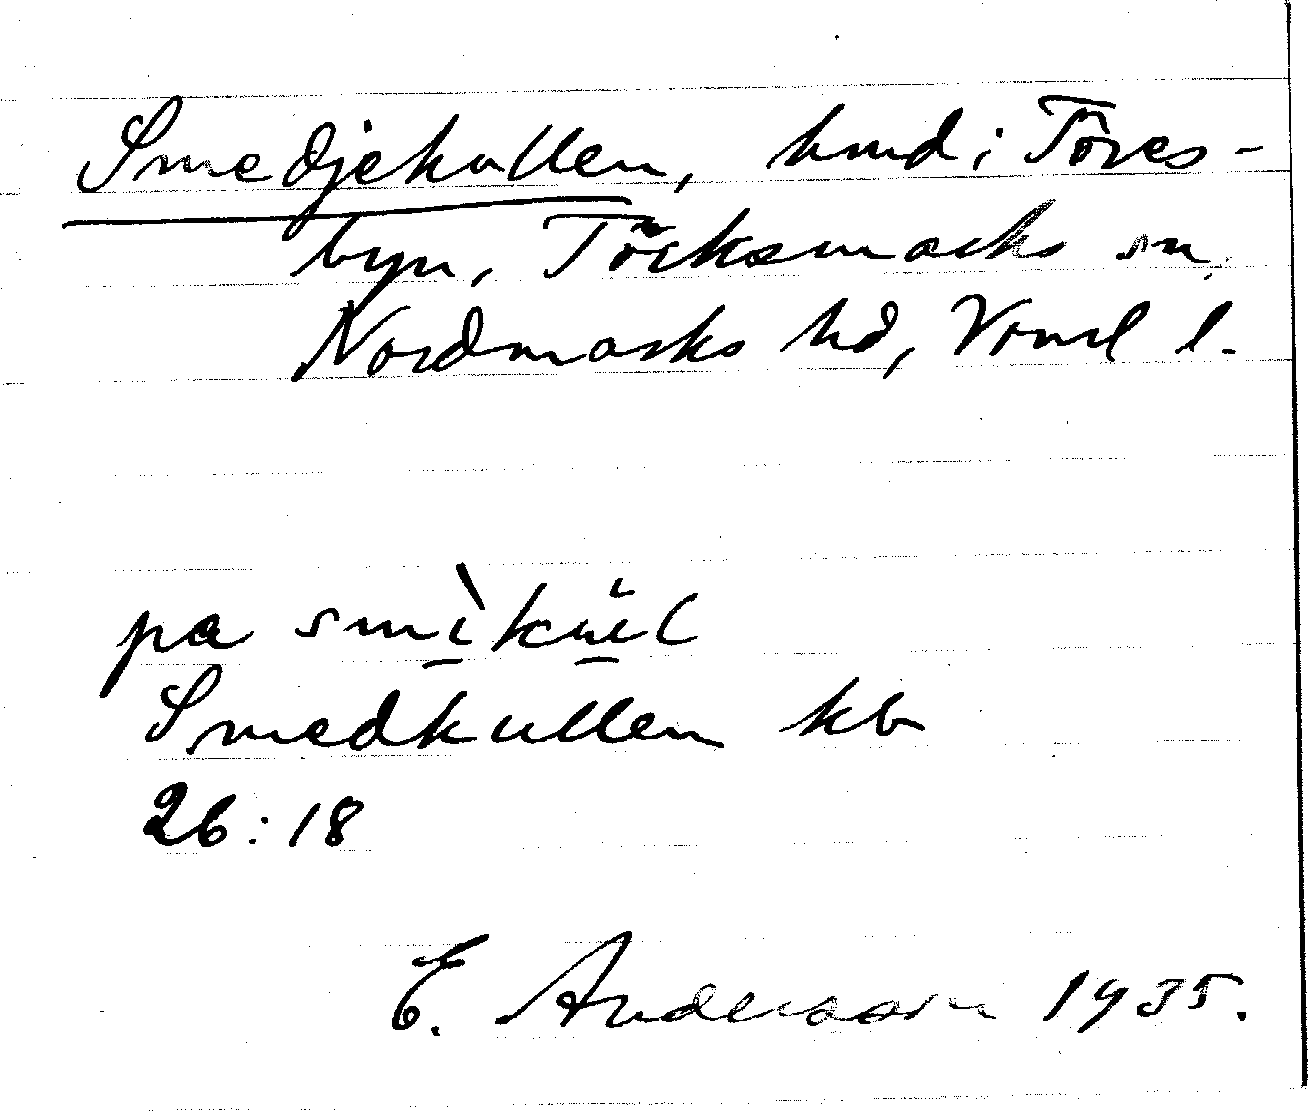 Smedjekullen, hmd i Töres-
byn, Töcksmarks sn
Nordmarks hd, Vrml l.
pa smìkŭl
Smedkullen kb
26:18
E. Andersson 1935.